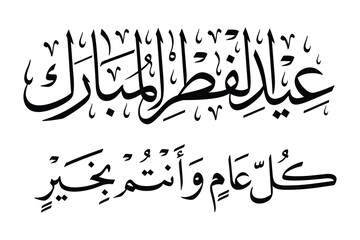 عِيدُ الْفِطْرِ الْمُبَارَك
كُلُّ عَامٍ وَأَنْتُمْ بِخَيْرٍ